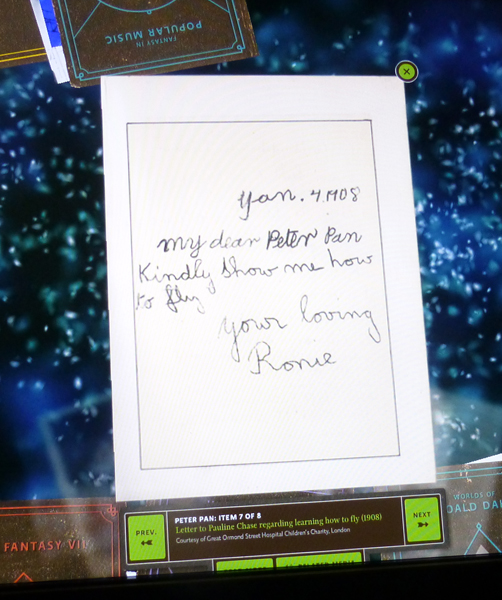 FANTASY IN
POPULAR MUSIC
Jan. 4. 1908
My dear Peter Pan
Kindly show me how
to fly
your loving
Ronie
PREV.
PETER PAN: ITEM 7 OF 8
Letter to Pauline Chase regarding learning how to fly (1908)
Courtesy of Great Ormond Street Hospital Children's Charity, London
NEXT
FANTASY
WORLDS OF
OALD DA